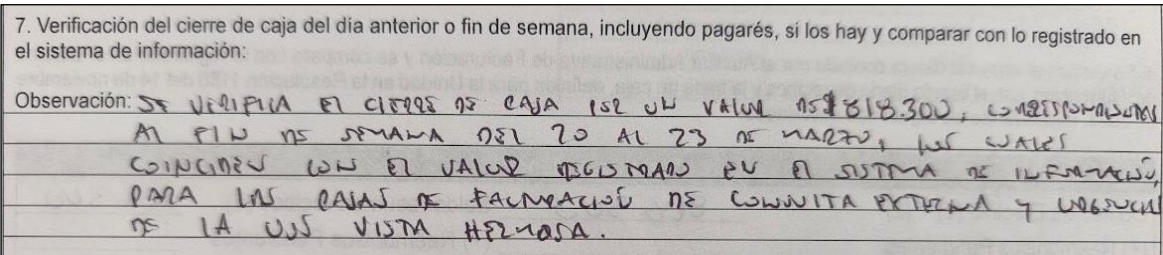 7. Verificación del cierre de caja del día anterior o fin de semana, incluyendo pagarés, si los hay y comparar con lo registrado en
el sistema de información:
Observación: SE VERIFICA El CIERRE DE CAJA POR UN VALOR DE $818.300, CORRESPONDIENTES
Al FIN DE SEMANA DEL 20 AL 23 DE MARZO, LOS CUALES
COINCIDEN CON El VALOR REGISTRADO EN El SISTEMA DE INFORMACIÓN,
PARA LAS CAJAS DE FACTURACIÓN DE CONSULTA EXTERNA Y URGENCIAS
DE LA USS VISTA HERMOSA.